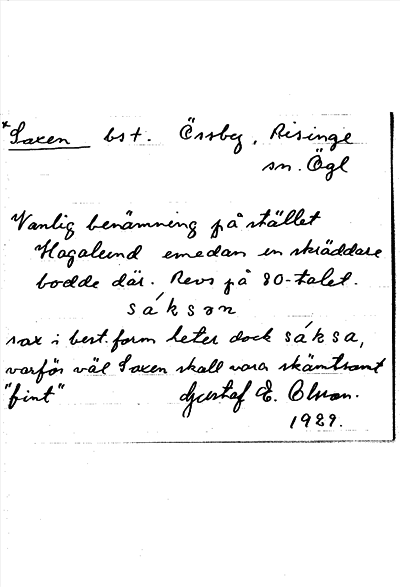 *Saxen bst. Örsby, Risinge
sn. Ögl
Vanlig benämning på stället
Hagalund emedan en skräddare
bodde där. Revs på 80-talet.
sáksən
sax i best. form heter dock sáksa,
varför väl Saxen skall vara skämtsamt
"fint" Gustaf E. Olson.
1929.